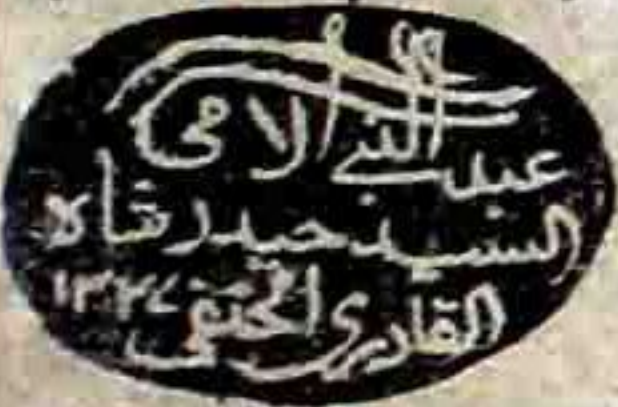 عبد النبی الامی
السید حیدر شاہ
القادری الحنفی ۱۳۴۴